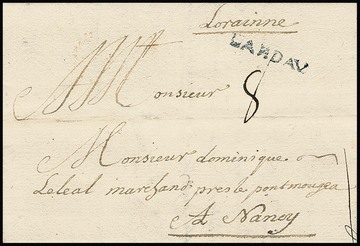 Lorainne
LANDAU
Monsieur
8
Monsieur dominique
Leleal marchand pres le pont mougea
A Nancy